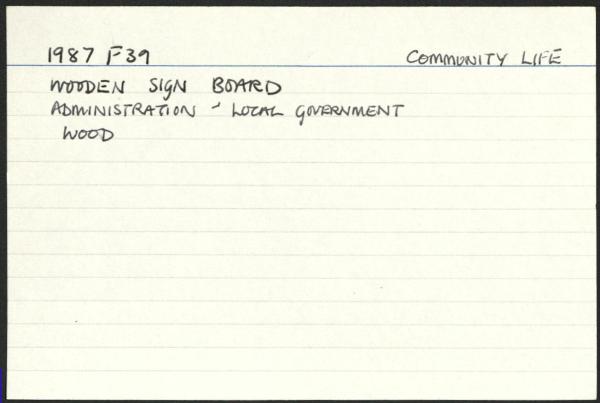 1987 F39 COMMUNITY LIFE
WOODEN SIGN BOARD
ADMINISTRATION - LOCAL GOVERNMENT
WOOD